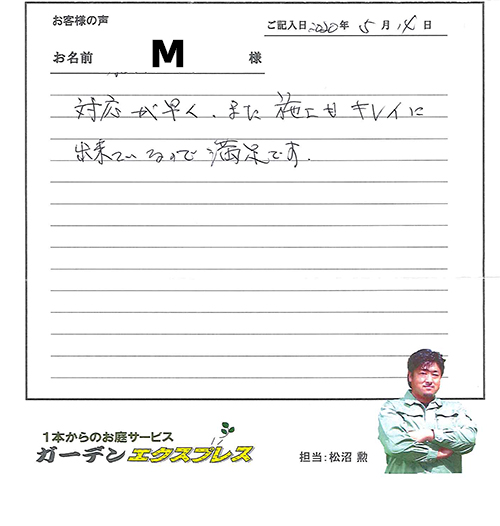 お客様の声
ご記入日2020年 5月 14日
お名前 M 様
対応が早く、また施工もキレイに
出来ているので満足です.
1本からのお庭サービス
ガーデンエクスプレス
担当:松沼 勲